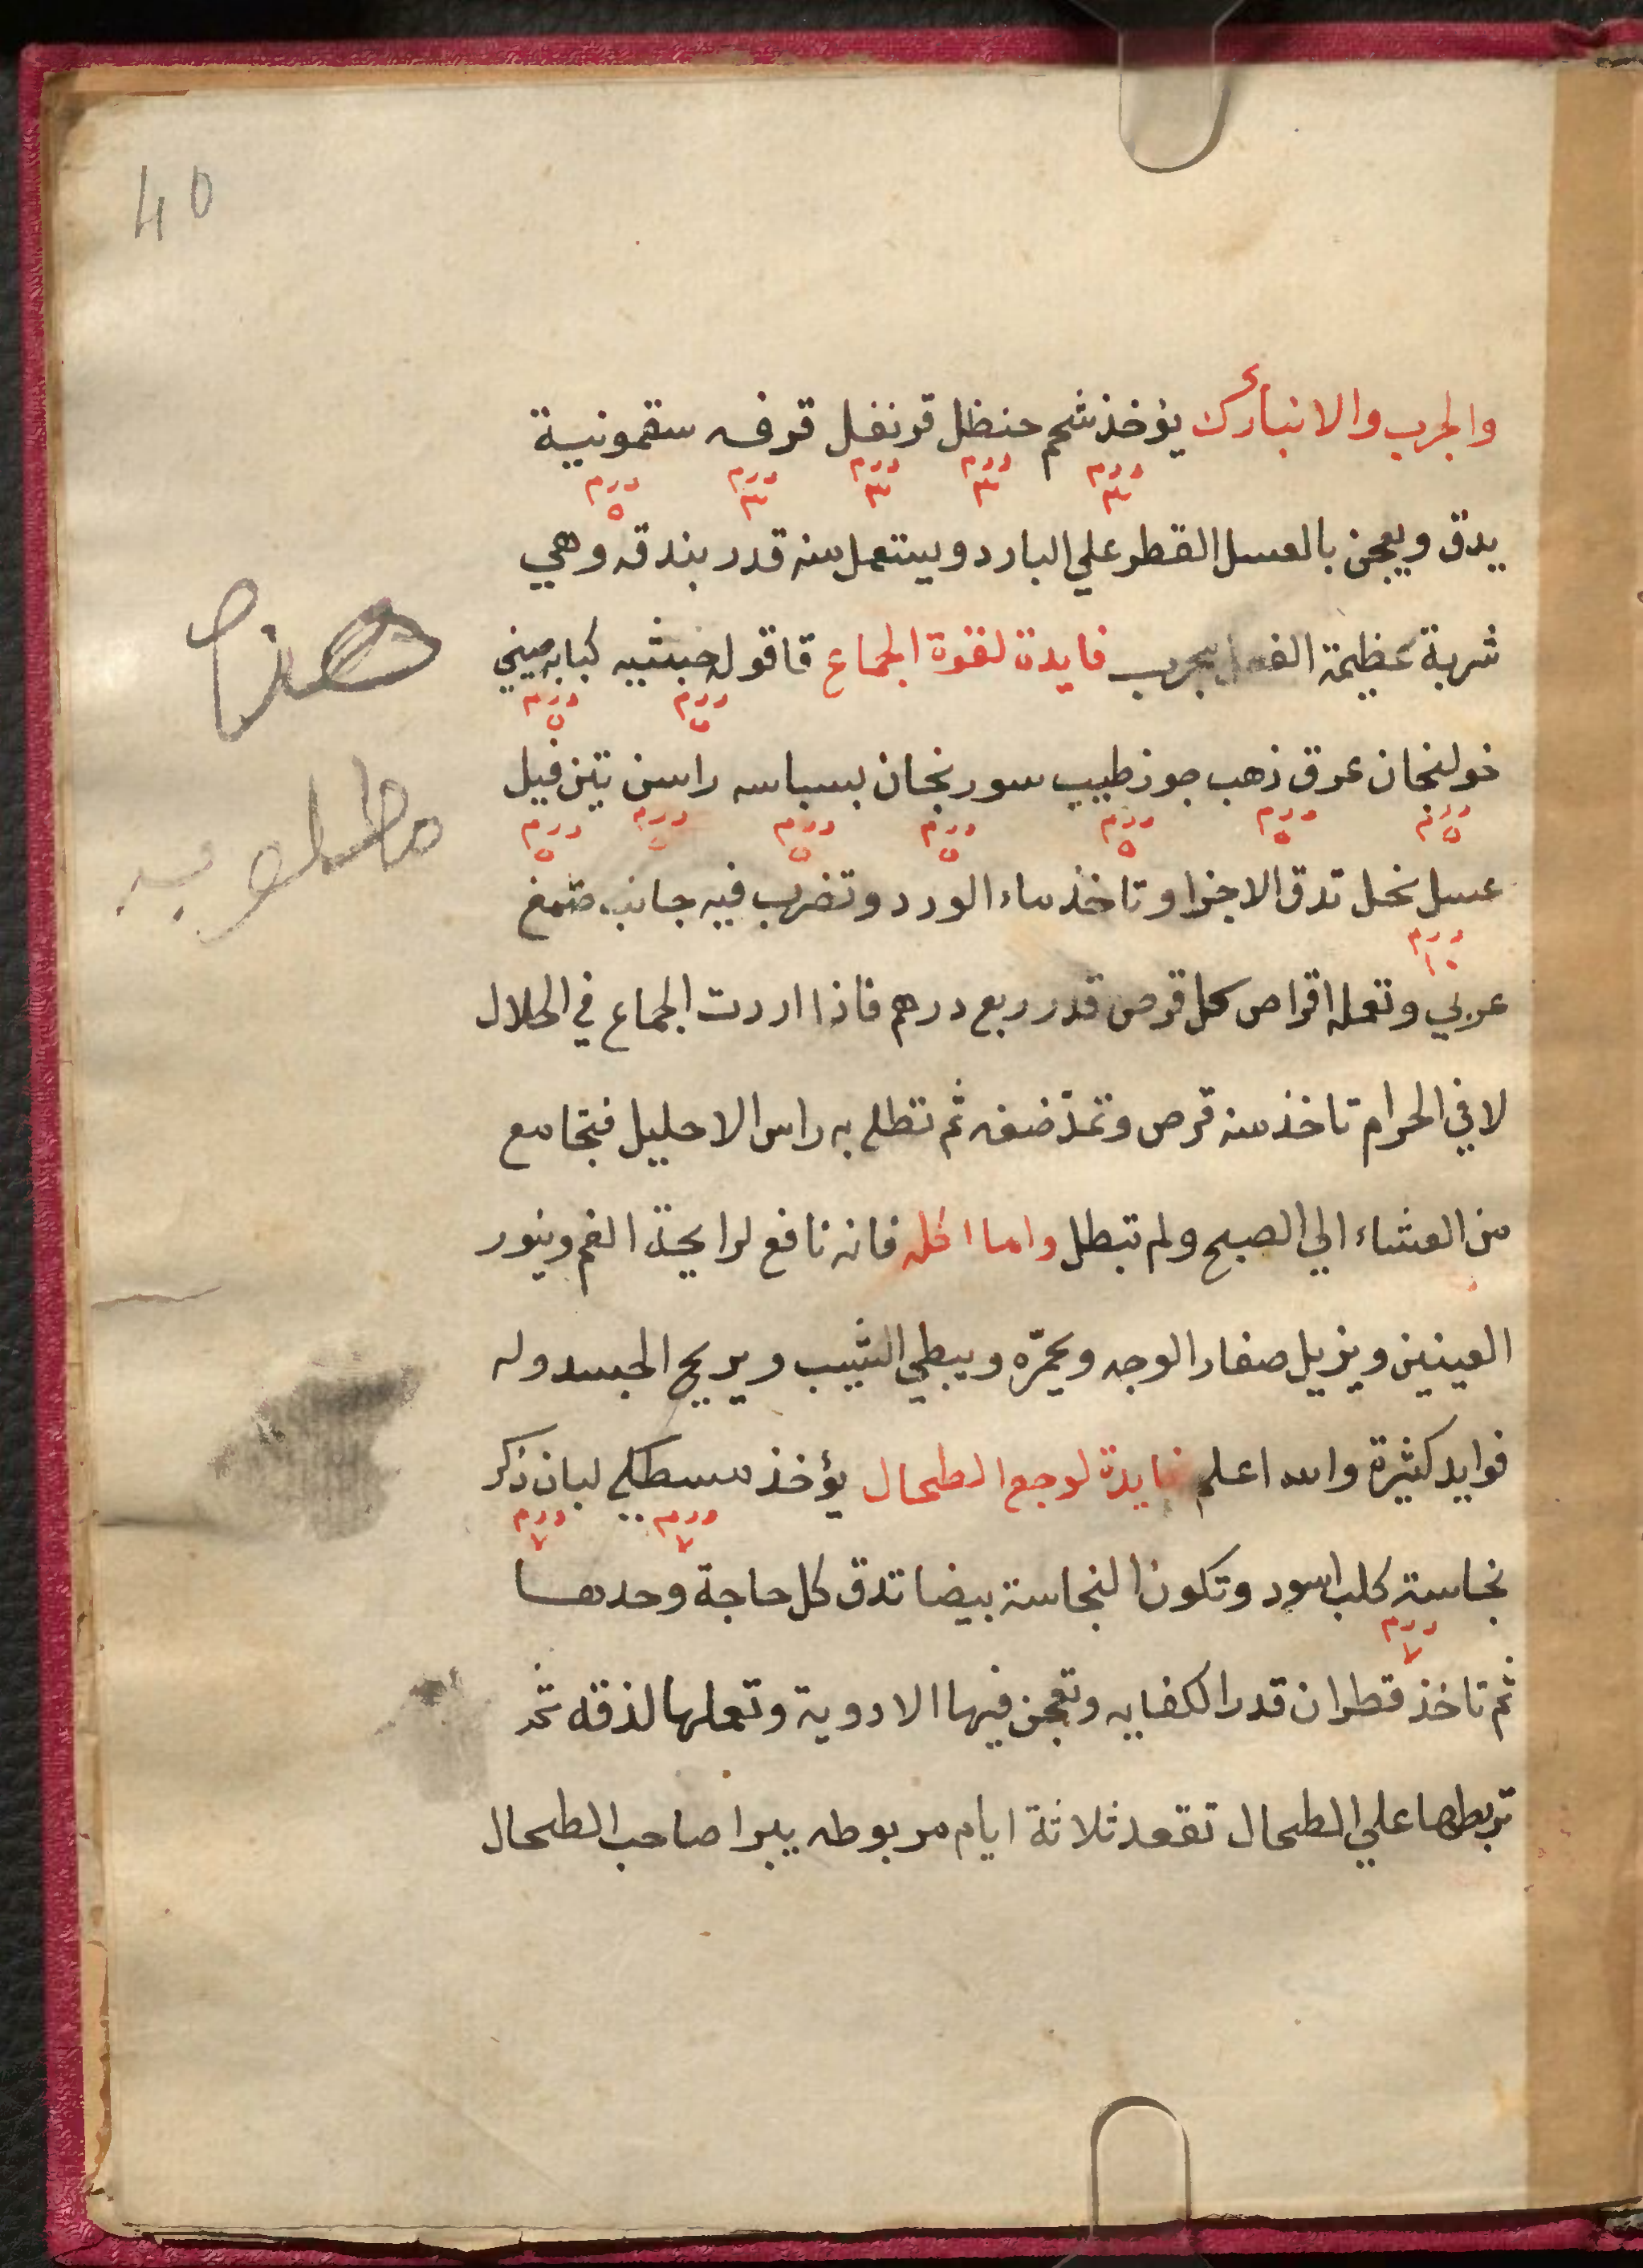 40
والجرب والانبارك يؤخذ شحم حنظل قرنفل قرفه سقمونية
درم ٣ درم ٣ درم ٣ درم ٣ درم ٥
يدق ويعجن بالعسل القطر علي البارد ويستعمل منه قدر بندقه وهي
شربة عظيمة مجرب فايدة لقوة الجماع قاقوله حبشيه كبابه صيني
درم ٥ درم ٥
هذا
خولنجان عرق ذهب جوز طيب سورنجان بسباسه راسن تين فيل
درم ٥ درم ٥ درم ٥ درم ٥ درم ٥ درم ٥ درم ٥
عسل نحل تدق الاجزا وتاخذ ماء الورد وتضرب فيه جانب صمغ
درم ١٠
عربي وتعمله اقراص كل قرص قدر ربع درهم فاذا اردت الجماع في الحلال
لا في الحرام تاخذ منه قرص وتمد ضفه ثم تطلي به راس الاحليل فتجامع
من العشاء الي الصبح ولم تبطل واما اكله فانه نافع لرايحة الفم وينور
العينين ويزيل صفار الوجه ويحمّره ويبطي الشيب ويريح الجسد وله
فوايد كثيرة والله اعلم فايدة لوجع الطحال يؤخذ مسطكي لبان ذكر
درم ٧ درم ٧
نجاسة كلب اسود وتكون النجاسة بيضا تدق كل حاجة وحدها
درم ٧
ثم تاخذ قطران قدر الكفايه وتعجن فيها الادوية وتعملها لذقه ثم
تربطها علي الطحال تقعد ثلاثة ايام مربوطه يبرا صاحب الطحال